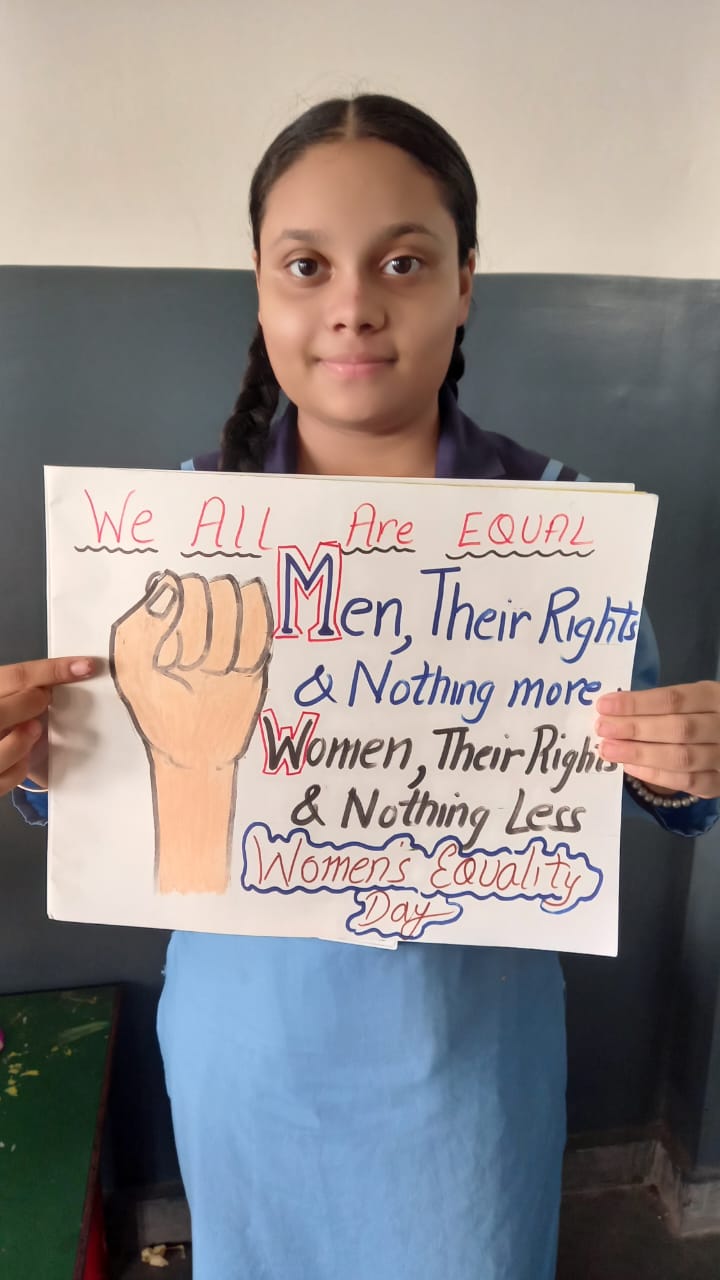 We All Are EQUAL
Men, Their Rights
& Nothing more.
Women, Their Rights
& Nothing Less
Women's Equality
Day